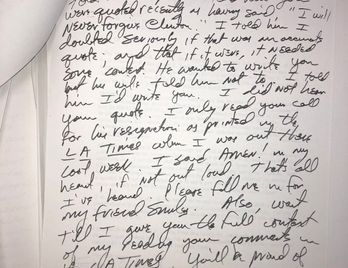 were quoted recently as having said "I will
never forgive Clinton." I told him I
doubted seriously if that was an accurate
quote, and that if it were, it needed
some context. He wanted to write you
but his wife told him not to. I told
him I'd write you. I did not hear
your quote. I only read your call
for his resignation as printed in the
LA Times when I was out those
last week. I said Amen! in my
heart, if not out loud. That's all
I've heard. Please fill me in for
my friend Also, wait
till I give you the full context
of my reading your comments in
LA Times. You'll be proud of